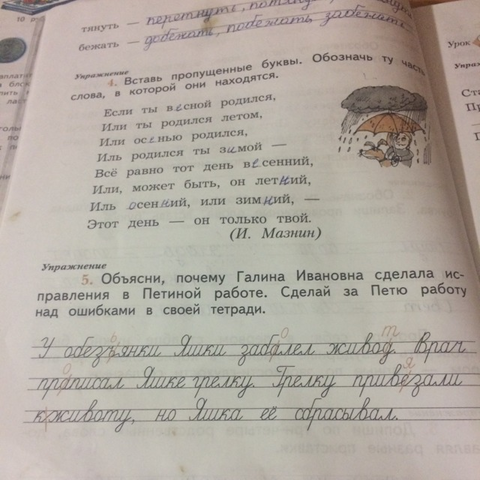 тянуть — перетянуть,
бежать — добежать, побежать, забежать
Упражнение
4. Вставь пропущенные буквы. Обозначь ту часть
слова, в которой они находятся.
Если ты весной родился,
Или ты родился летом,
Или осенью родился,
Иль родился ты зимой —
Всё равно тот день весенний,
Или, может быть, он летний,
Иль осенний, или зимний, —
Этот день — он только твой.
(И. Мазнин)
Упражнение
5. Объясни, почему Галина Ивановна сделала ис-
правления в Петиной работе. Сделай за Петю работу
над ошибками в своей тетради.
ь о т
У обезъянки Яшки забалел живод. Врач
о я
прапис​ал Яшке грелку. Грелку привезали
кживоту, но Яшка её сбрасывал.
Урок
Упраж
Ста
Пр